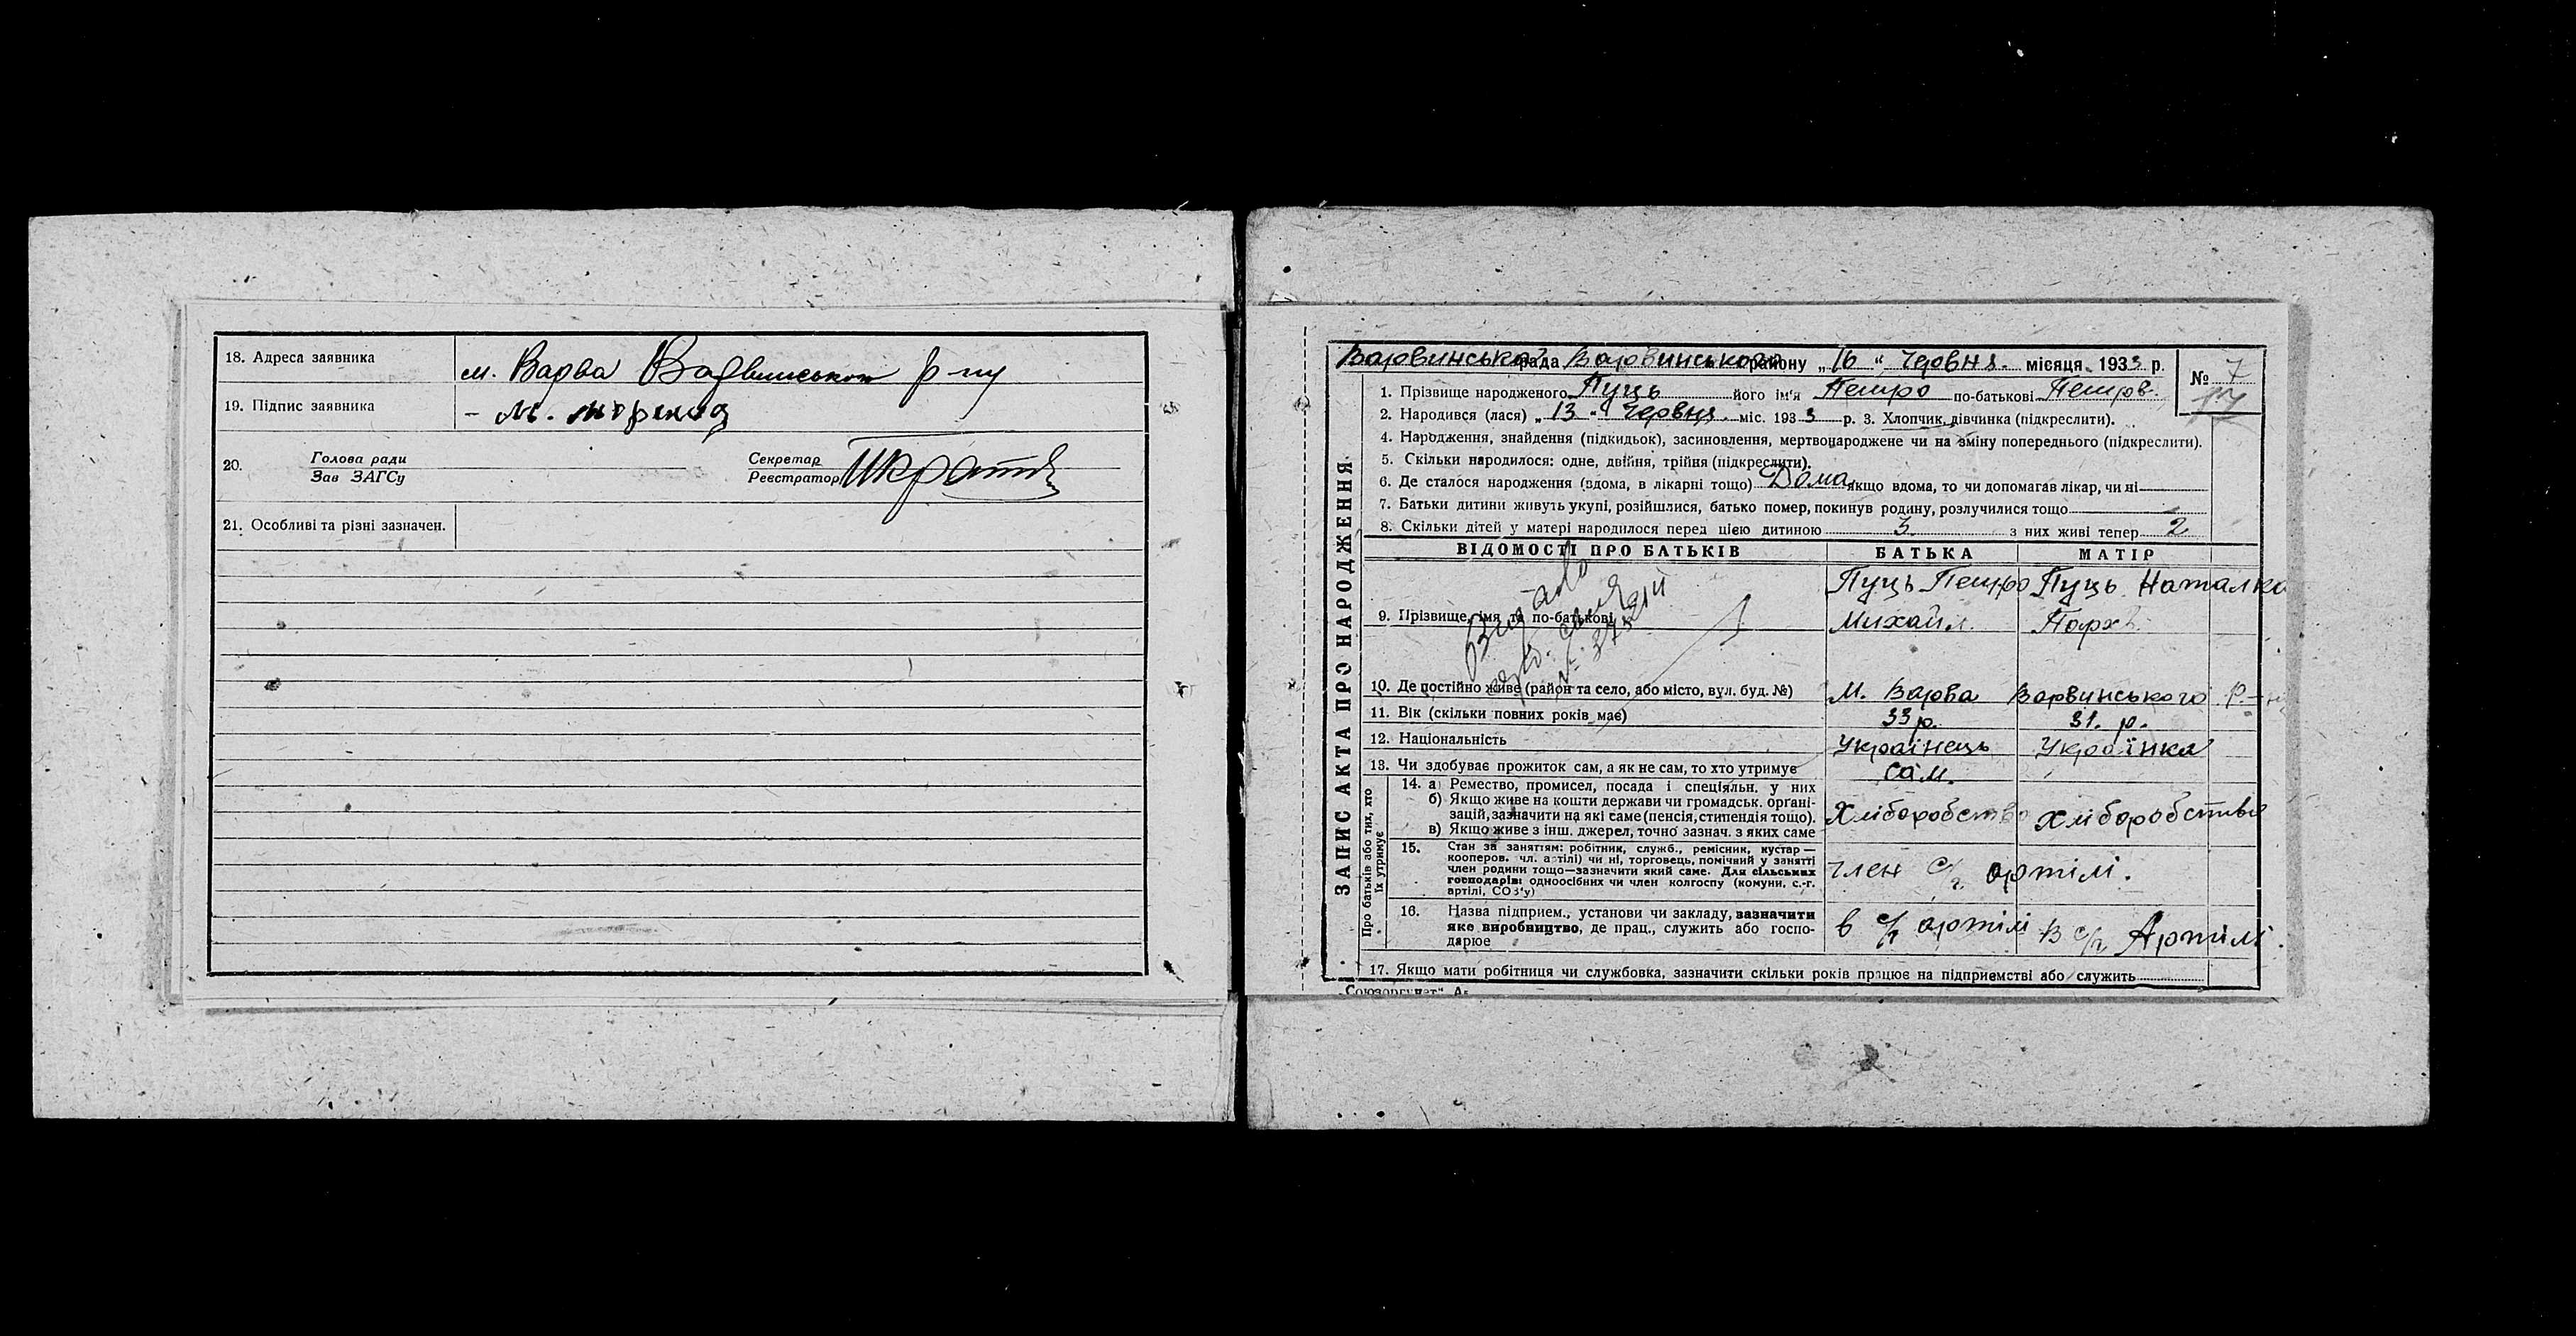 18. Адреса заявника м. Варва Варвинського р-ну
19. Підпис заявника
20. Голова ради Секретар
Зав ЗАГСу Реєстратор
21. Особливі та різні зазначен.
Варвинська рада Варвинського району „16 “ Червня. місяця 1933 р.
№ 7
17
1. Прізвище народженого Пуць його ім'я Петро по-батькові Петров.
2. Народився (лася) „ 13 “ Червня міс. 1933 р. 3. Хлопчик, дівчинка (підкреслити).
4. Народження, знайдення (підкидьок), засиновлення, мертвонароджене чи на зміну попереднього (підкреслити).
5. Скільки народилося: одне, двійня, трійня (підкреслити).
6. Де сталося народження (вдома, в лікарні тощо) Дома якщо вдома, то чи допомагав лікар, чи ні
7. Батьки дитини живуть укупі, розійшлися, батько помер, покинув родину, розлучилися тощо
8. Скільки дітей у матері народилося перед цією дитиною 3. з них живі тепер 2
ЗАПИС АКТА ПРО НАРОДЖЕННЯ
ВІДОМОСТІ ПРО БАТЬКІВ БАТЬКА МАТІР
Пуць Петро Пуць Наталка
9. Прізвище, імя та по-батькові Михайл. Парх
10. Де постійно живе (район та село, або місто, вул. буд. №) М. Варва Варвинського р-ну
11. Вік (скільки повних років має) 33 р. 31. р.
12. Національність Українець Українка
13. Чи здобуває прожиток сам, а як не сам, то хто утримує Сам.
Про батьків або тих, хто їх утримує
14. а) Ремество, промисел, посада і спеціяльн. у них
б) Якщо живе на кошти держави чи громадськ. органі-
зацій, зазначити на які саме (пенсія, стипендія тощо). Хліборобство Хліборобство
в) Якщо живе з інш. джерел, точно зазнач. з яких саме
15. Стан за заняттям: робітник, служб., ремісник, кустар—
кооперов. чл. артілі) чи ні, торговець, помічний у занятті
член родини тощо—зазначити який саме. Для сільських член с/г артілі.
господарів: одноосібних чи член колгоспу (комуни, с.-г.
артілі, СОЗ'у)
16. Назва підприєм., установи чи закладу, зазначити
яке виробництво, де прац., служить або госпо- в с/г артілі в с/г Артілі.
дарює
17. Якщо мати робітниця чи службовка, зазначити скільки років працює на підприємстві або служить